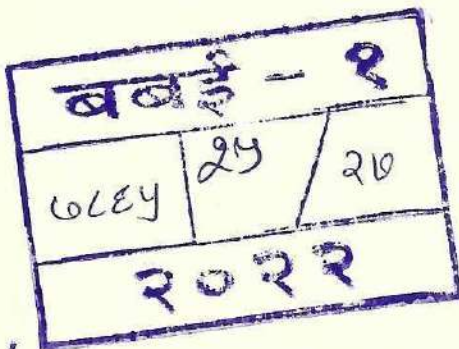 बबई - १
७८६५ २५ / २७
२०२२